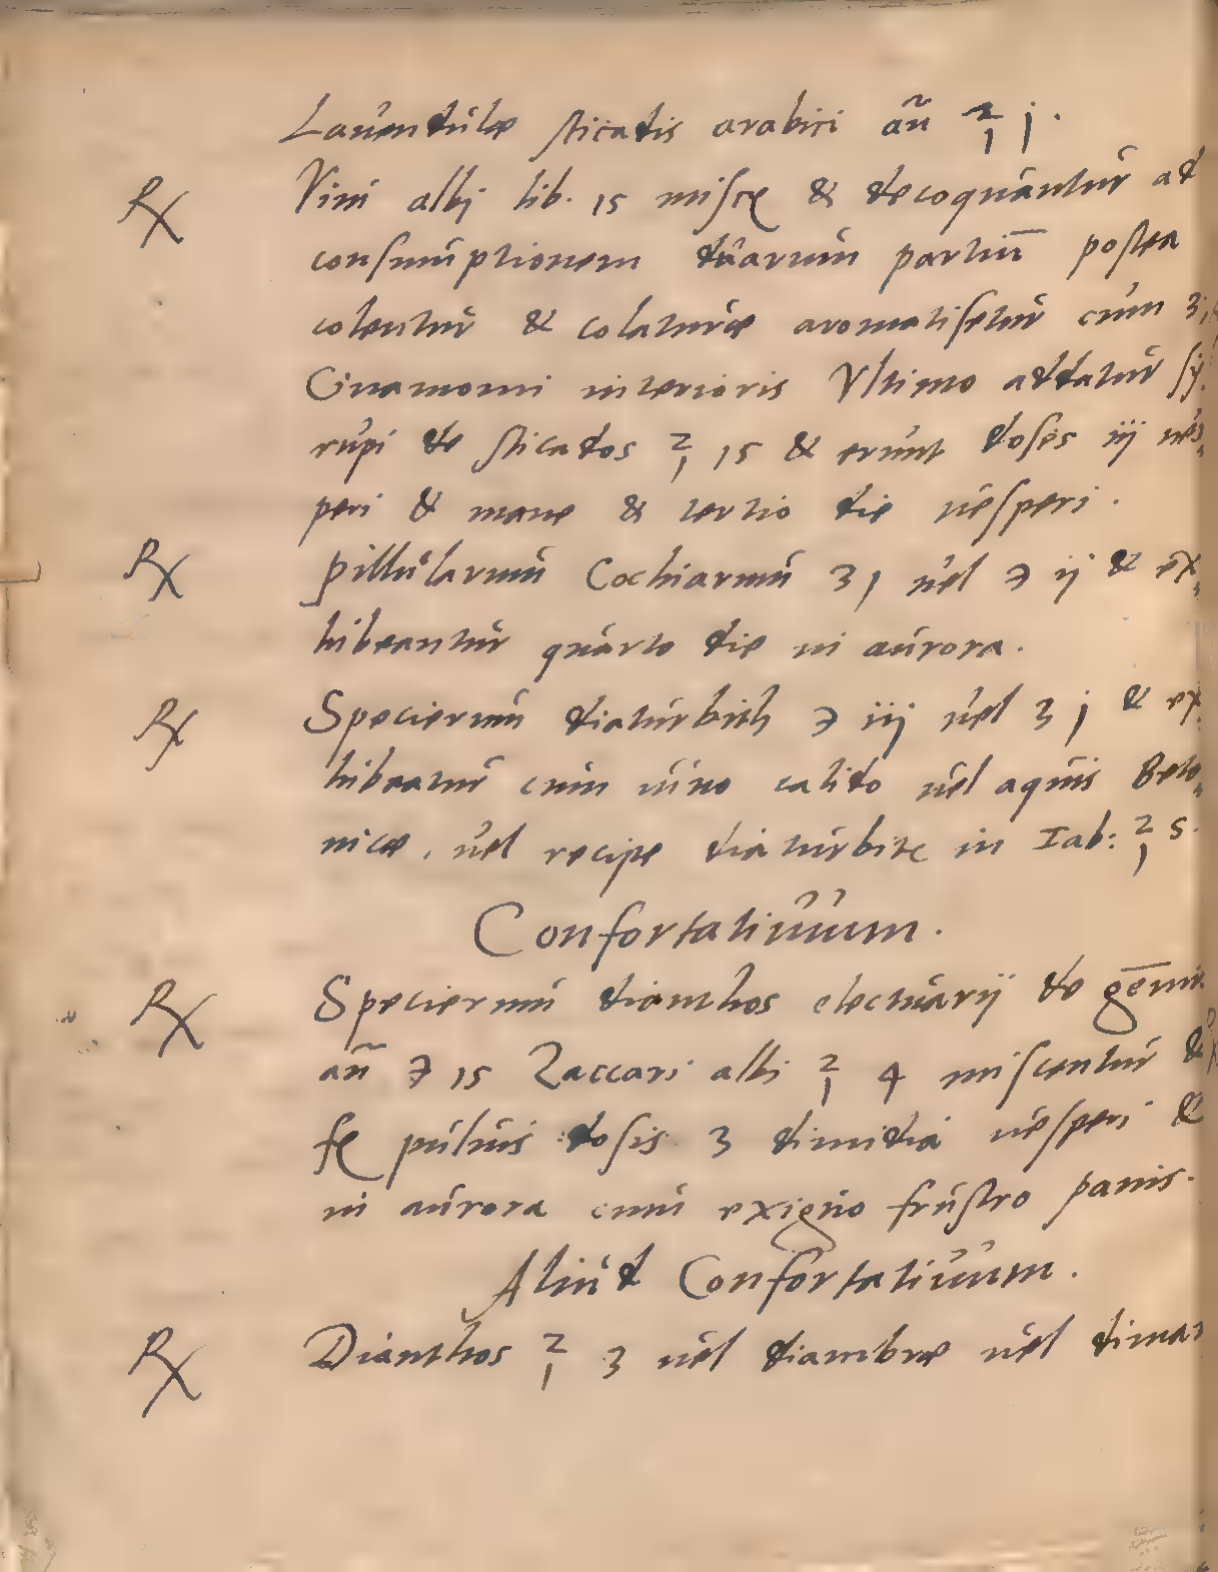 Lauendulæ sticadis arabici añ ℥ j.
℞ Vini albj lib. 15 misce & decoquantur ad
consumptionem duarum partiū postea
colentur & colaturæ aromatisetur cum ʒ
Cinamomi interioris Vltimo addatur sy
rupi de sticados ℥ 15 & erunt doses iij ues
peri & mane & tertio die uesperi.
℞ pillularum Cochiarum ʒ 1 uel ℈ ij & ex
hibeantur quarto die in aurora.
℞ Specierum diaturbith ℈ iij uel ʒ j & ex
hibeatur cum uino calido uel aquis Beto
nicæ, uel recipe diaturbitc in Tab: ℥ s.
Confortatiuuum.
℞ Specierum dianthos electuarij de gēmis
añ ℈ 15 Zaccari albi ℥ 4 miscentur &
fe puluis dosis ʒ dimidia uesperi &
in aurora cum exiguo frustro panis.
Aliud Confortatiuuum.
℞ Dianthos ℥ 3 uel diambræ uel dimar